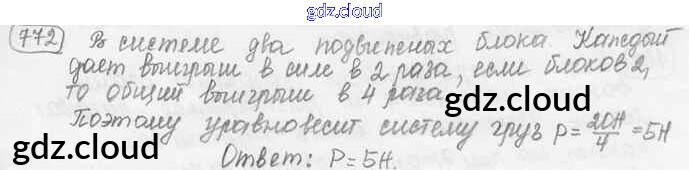 gdz.cloud
772 В системе два подвипеных блока. Каждый
дает выигрыш в силе в 2 раза, если блоков 2,
то общий выигрыш в 4 раза. gdz.cloud
Поэтому уравновесит систему груз P = 20Н/4 = 5Н
gdz.cloud gdz.cloud
Ответ: P = 5Н.